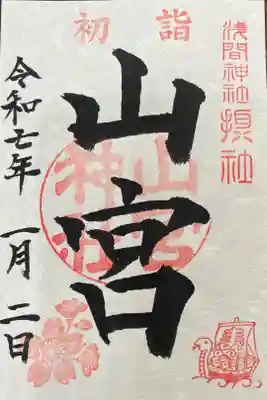 初詣
浅間神社摂社
山宮
山宮神社
令和七年 一月二日